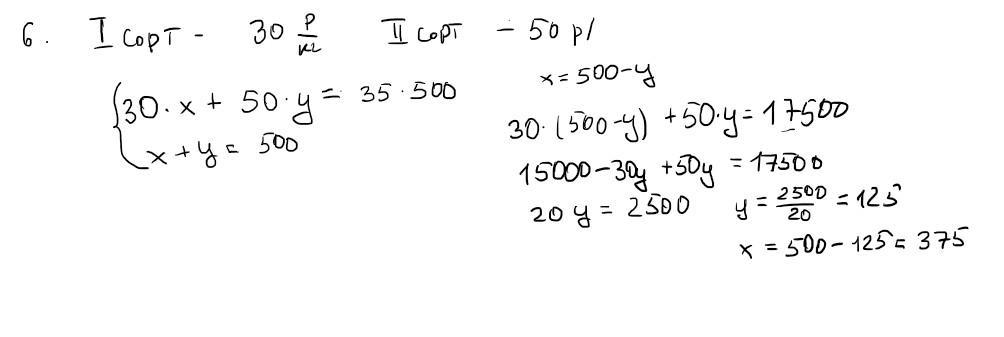 6. I сорт - 30 р/кг II сорт - 50 р/
{30·x + 50·y = 35·500
x + y = 500
x = 500-y
30·(500-y) +50·y = 17500
15000-30y +50y = 17500
20 y = 2500 y = 2500/20 = 125
x = 500 - 125 = 375